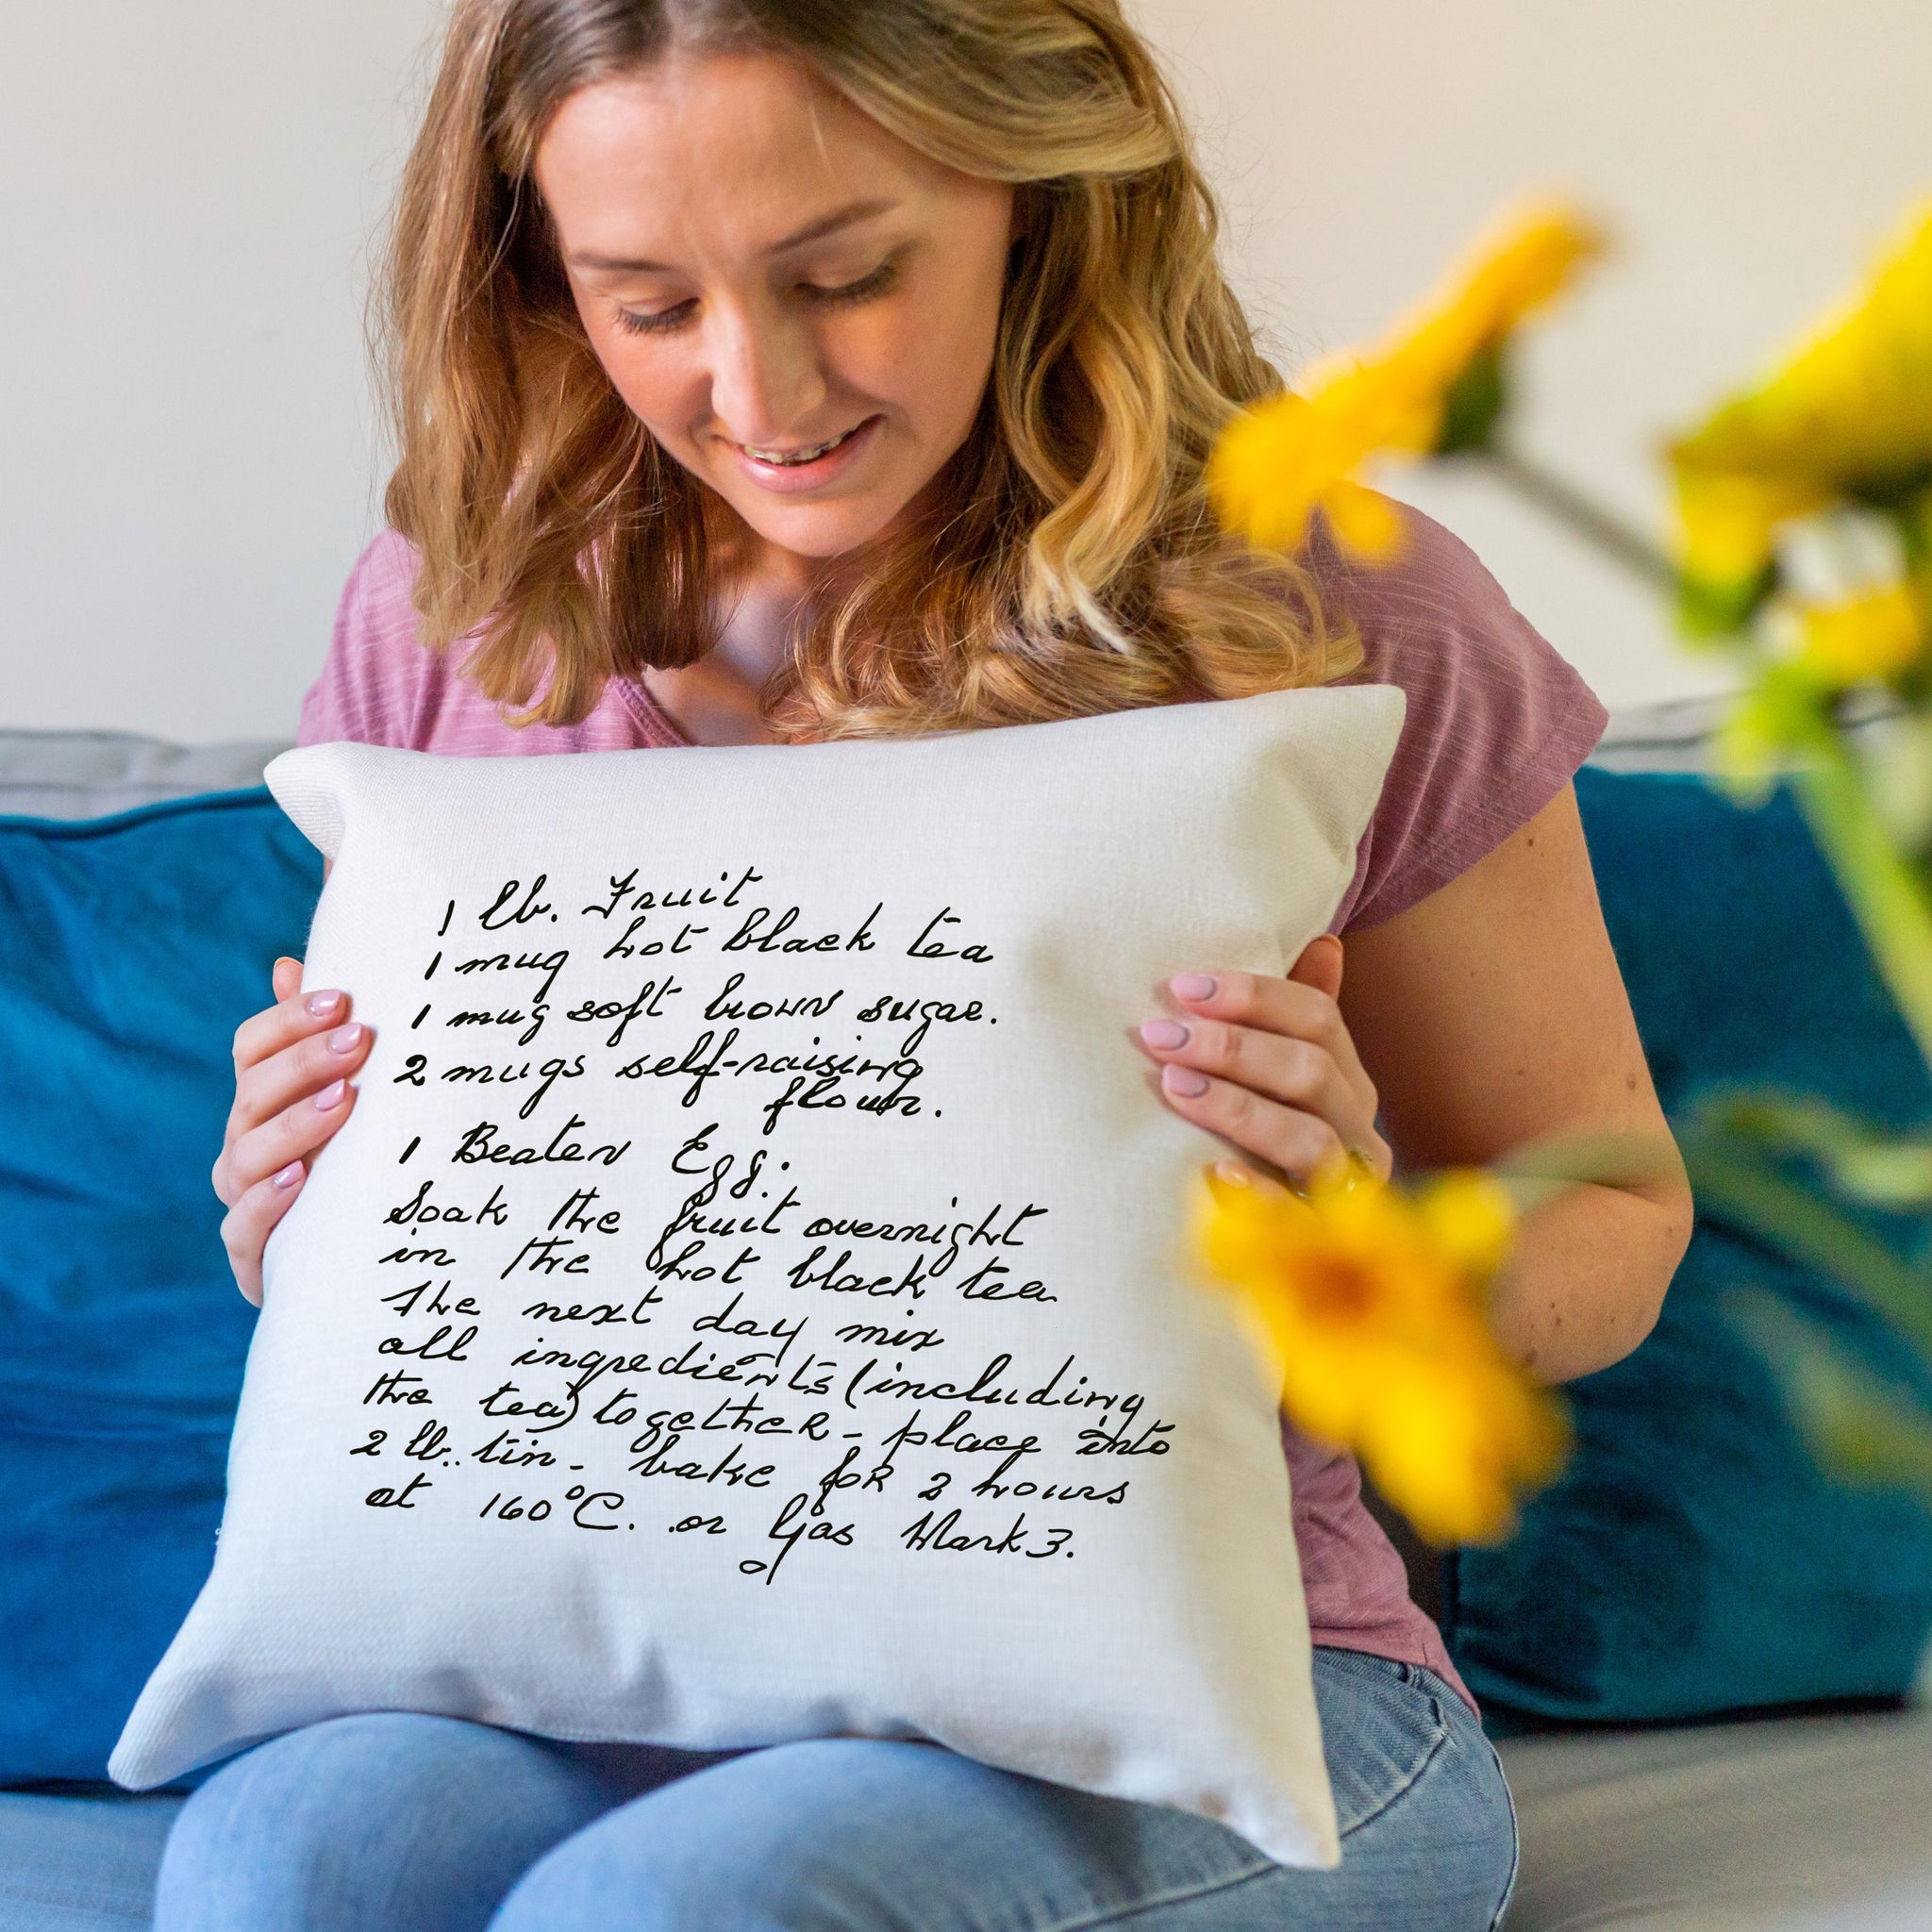 1 lb. Fruit
1 mug hot black tea
1 mug soft brown sugar.
2 mugs self-raising
flour.
1 Beaten Egg.
Soak the fruit overnight
in the hot black tea
The next day mix
all ingredients (including
the tea) together - place into
2 lb. tin - bake for 2 hours
at 160°C. or Gas Mark 3.